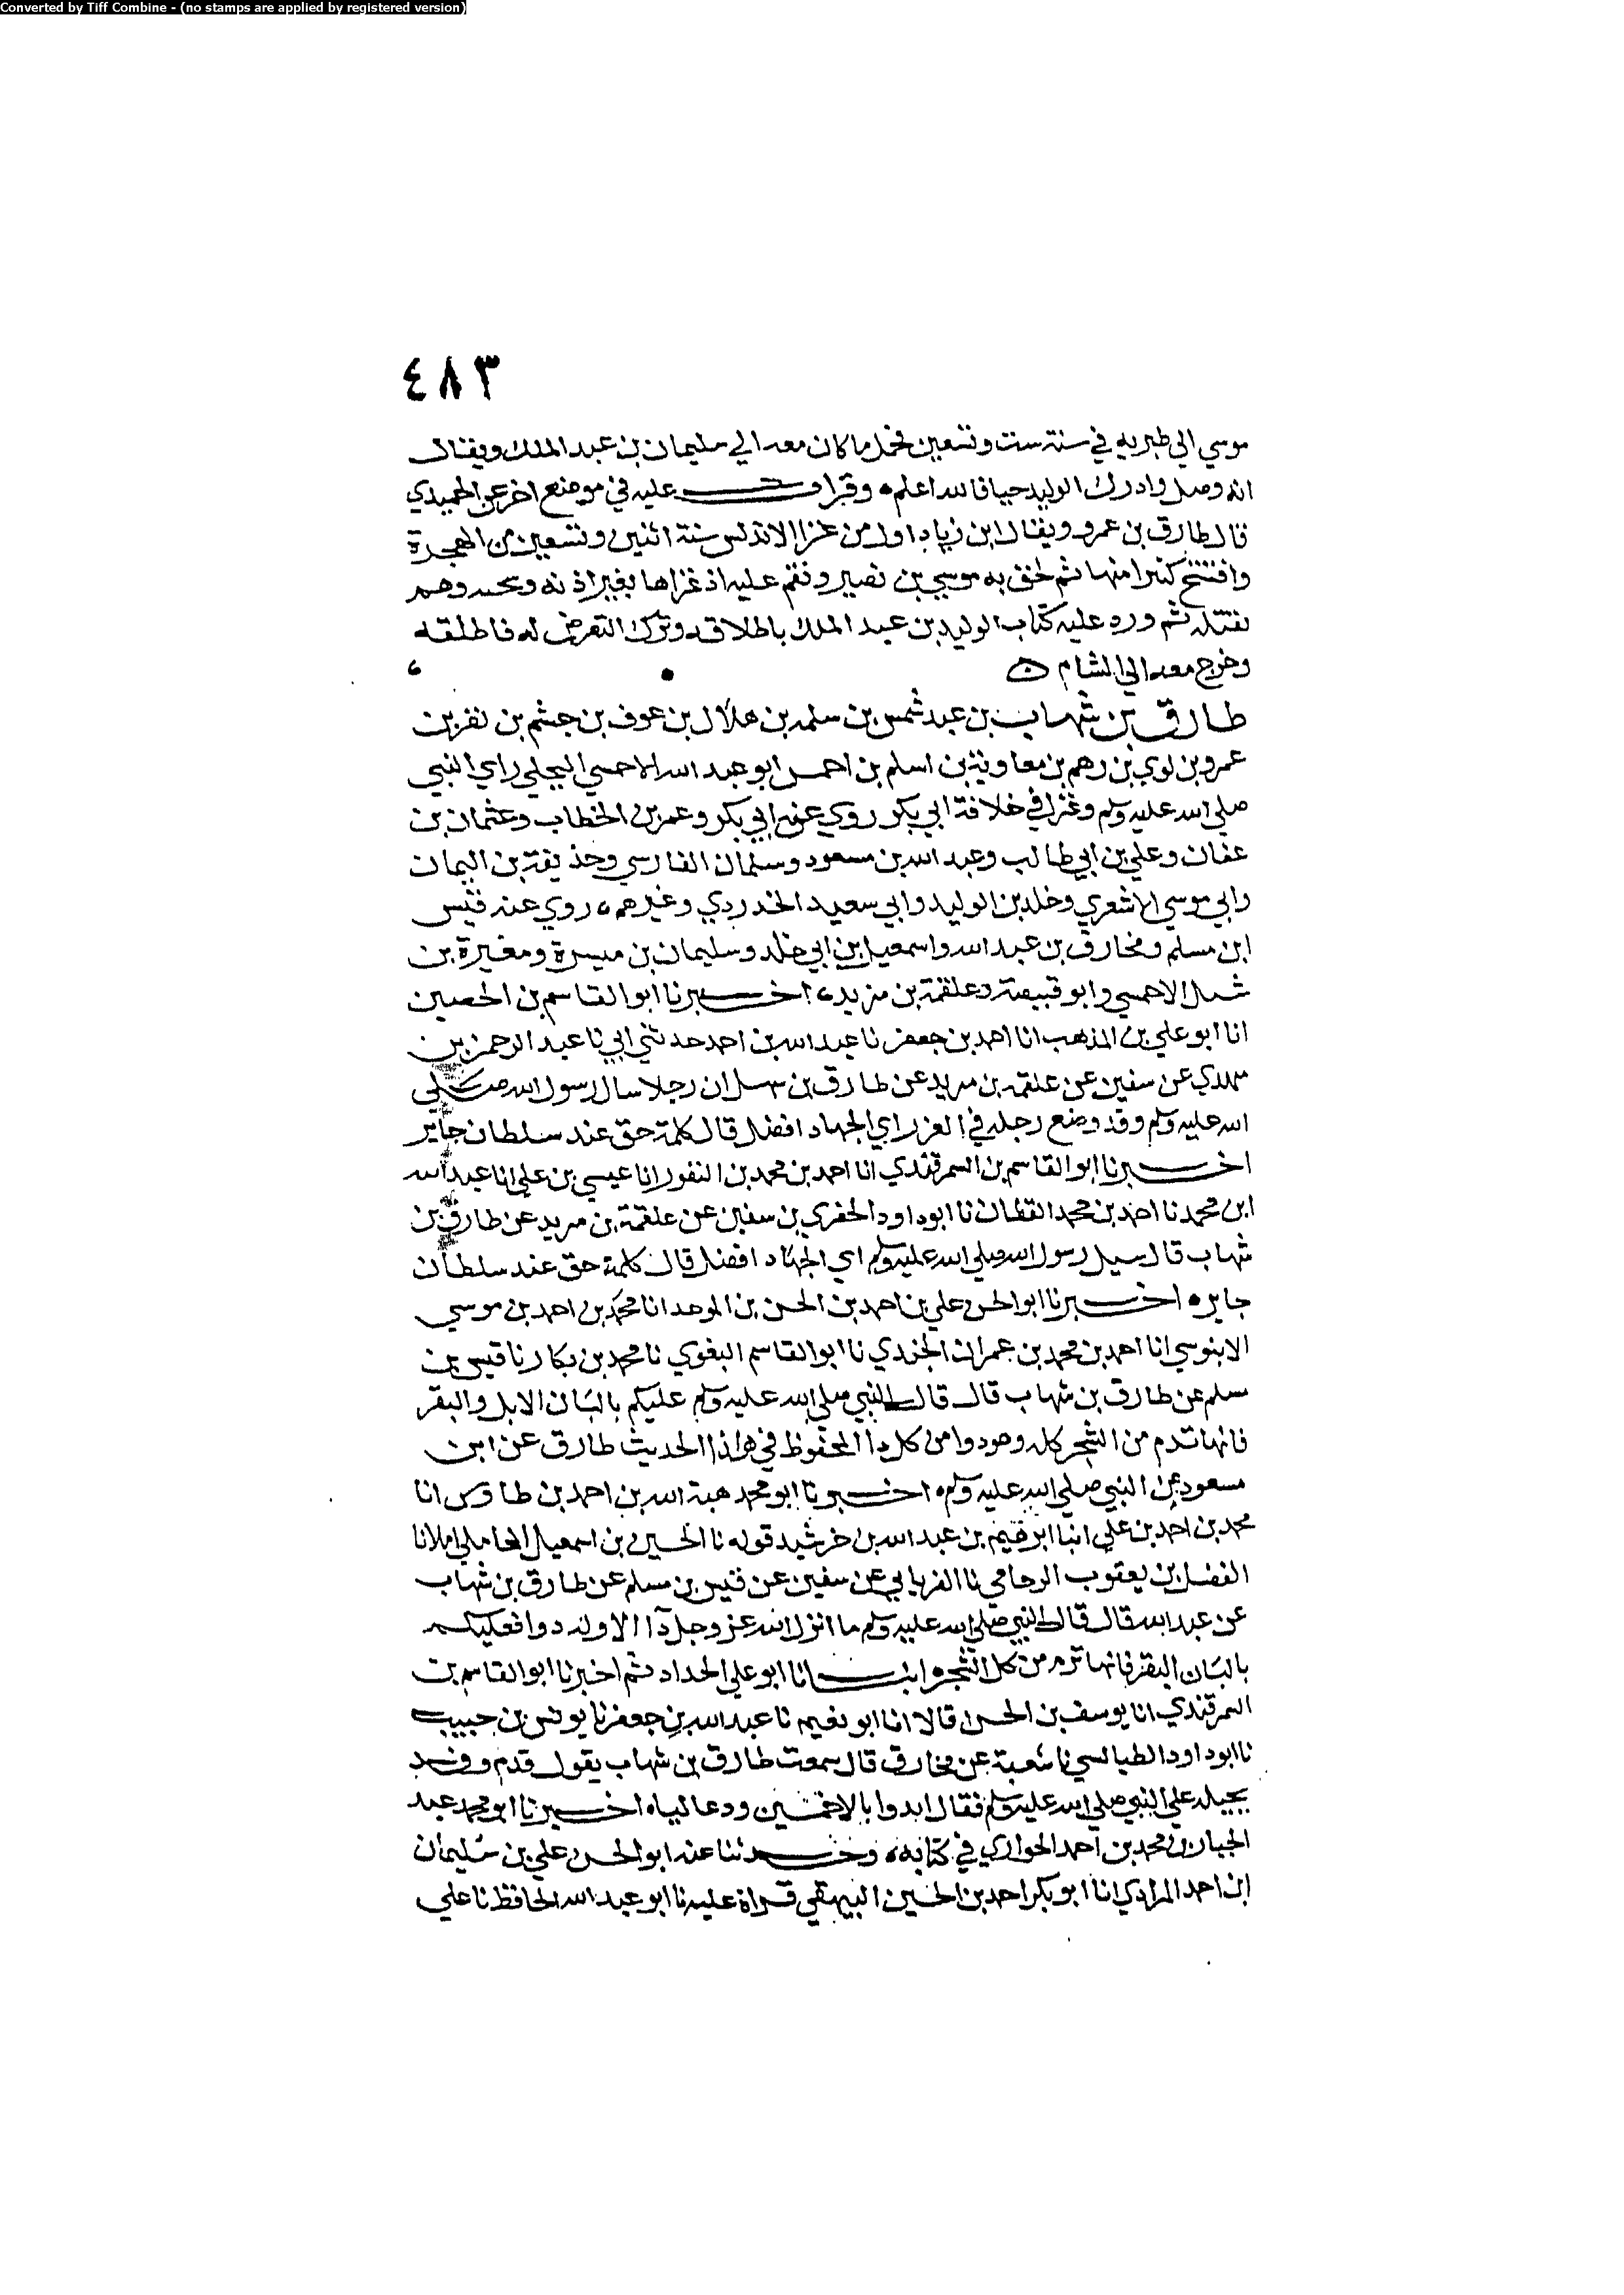 Converted by Tiff Combine - (no stamps are applied by registered version)
٤٨٣
موسي الي طبريه في سنة ست وتسعين فحمل ما كان معه الي سليمان بن عبد الملك ويقال
انه وصل وادرك الوليد حيا فالله اعلم وقرات عليه في موضع اخر عن الحميدي
قال طارق بن عمرو ويقال ابن زياد اول من غزا الاندلس سنة اثنين وتسعين من الهجرة
وافتتح كثيرا منها ثم لحق به موسي بن نصير ونقم عليه اذ غزاها بغير اذنه وسجنه وهم
بقتله ثم ورد عليه كتاب الوليد بن عبد الملك باطلاقه وترك التعرض له فاطلقه
وخرج معه الي الشام
طارق بن شهاب بن عبد شمس بن سلمه بن هلال بن عوف بن جشم بن نفر بن
عمرو بن لوي بن رهم بن معاوية بن اسلم بن احمس ابو عبد الله الاحمسي البجلي راي النبي
صلي الله عليه وسلم وغزا في خلافة ابي بكر روي عن ابي بكر وعمر بن الخطاب وعثمان بن
عفان وعلي بن ابي طالب وعبد الله بن مسعود وسلمان الفارسي وحذيفة بن اليمان
وابي موسي الاشعري وخلد بن الوليد وابي سعيد الخدردي وغيرهم، روي عنه قيس
ابن مسلم ومخارق بن عبد الله واسمعيل بن ابي خلد وسليمان بن ميسرة ومغيرة بن
شبل الاحمسي وابو قبيصة وعلقمة بن مزيد، اخبرنا ابو القاسم بن الحصين
انا ابو علي بن المذهب انا احمد بن جعفر نا عبد الله بن احمد حدثني ابي نا عبد الرحمن بن
مهدي عن سفين عن علقمه بن مريد عن طارق بن ان رجلا سال رسول الله صلي
الله عليه وسلم وقد وضع رجله في الغرز اي الجهاد افضل قال كلمة حق عند سلطان جاير
اخبرنا ابو القاسم بن السمرقندي انا احمد بن محمد بن النقور انا عيسي بن علي انا عبد الله
ابن محمد نا احمد بن محمد القطان نا ابو داود الحفري بن سفين عن علقمة بن مريد عن طارق بن
شهاب قال سيل رسول الله صلي الله عليه وسلم اي الجهاد افضل قال كلمة حق عند سلطان
جاير ه اخبرنا ابو الحسن علي بن احمد بن الحسن بن الموحد انا محمد بن احمد بن موسي
الابنوسي انا احمد بن محمد بن عمران الجندي نا ابو القاسم البغوي نا محمد بن بكار نا قيس بن
مسلم عن طارق بن شهاب قال قال النبي صلي الله عليه وسلم عليكم بالبان الابل والبقر
فانها ترم من الشجر كله وهو دوا من كل دا المحفوظ في هذا الحديث طارق عن ابن
مسعود عن النبي صلي الله عليه وسلم ه اخبرنا ابو محمد هبة الله بن احمد بن طاوس انا
محمد بن احمد بن علي انبا ابرهيم بن عبد الله بن خرشيد قوله نا الحسين بن اسمعيل المحاملي املا نا
الفضل بن يعقوب الرخامي نا الفريابي عن سفين عن قيس بن مسلم عن طارق بن شهاب
عن عبد الله قال قال النبي صلي الله عليه وسلم ما انزل الله عز وجل دآ الا وله دوا فعليكم
بالبان البقر فانها ترم من كل الشجر ه انبانا ابو علي الحداد ثم اخبرنا ابو القاسم بن
السمرقندي انا يوسف بن الحسن قالا انا ابو نعيم نا عبد الله بن جعفر نا يونس بن حبيب
نا ابو داود الطيالسي نا شعبة عن مخارق قال سمعت طارق بن شهاب يقول قدم وفد
بجيله علي النبي صلي الله عليه وسلم فقال ابدوا بالاحمسين ودعا لنا ه اخبرنا ابو محمد عبد
الجبار بن محمد بن احمد الخواري في كتابه، وحدثنا عنه ابو الحسن علي بن سليمان
ابن احمد المرادي انا ابو بكر احمد بن الحسين البيهقي قراة عليه نا ابو عبد الله الحافظ نا علي